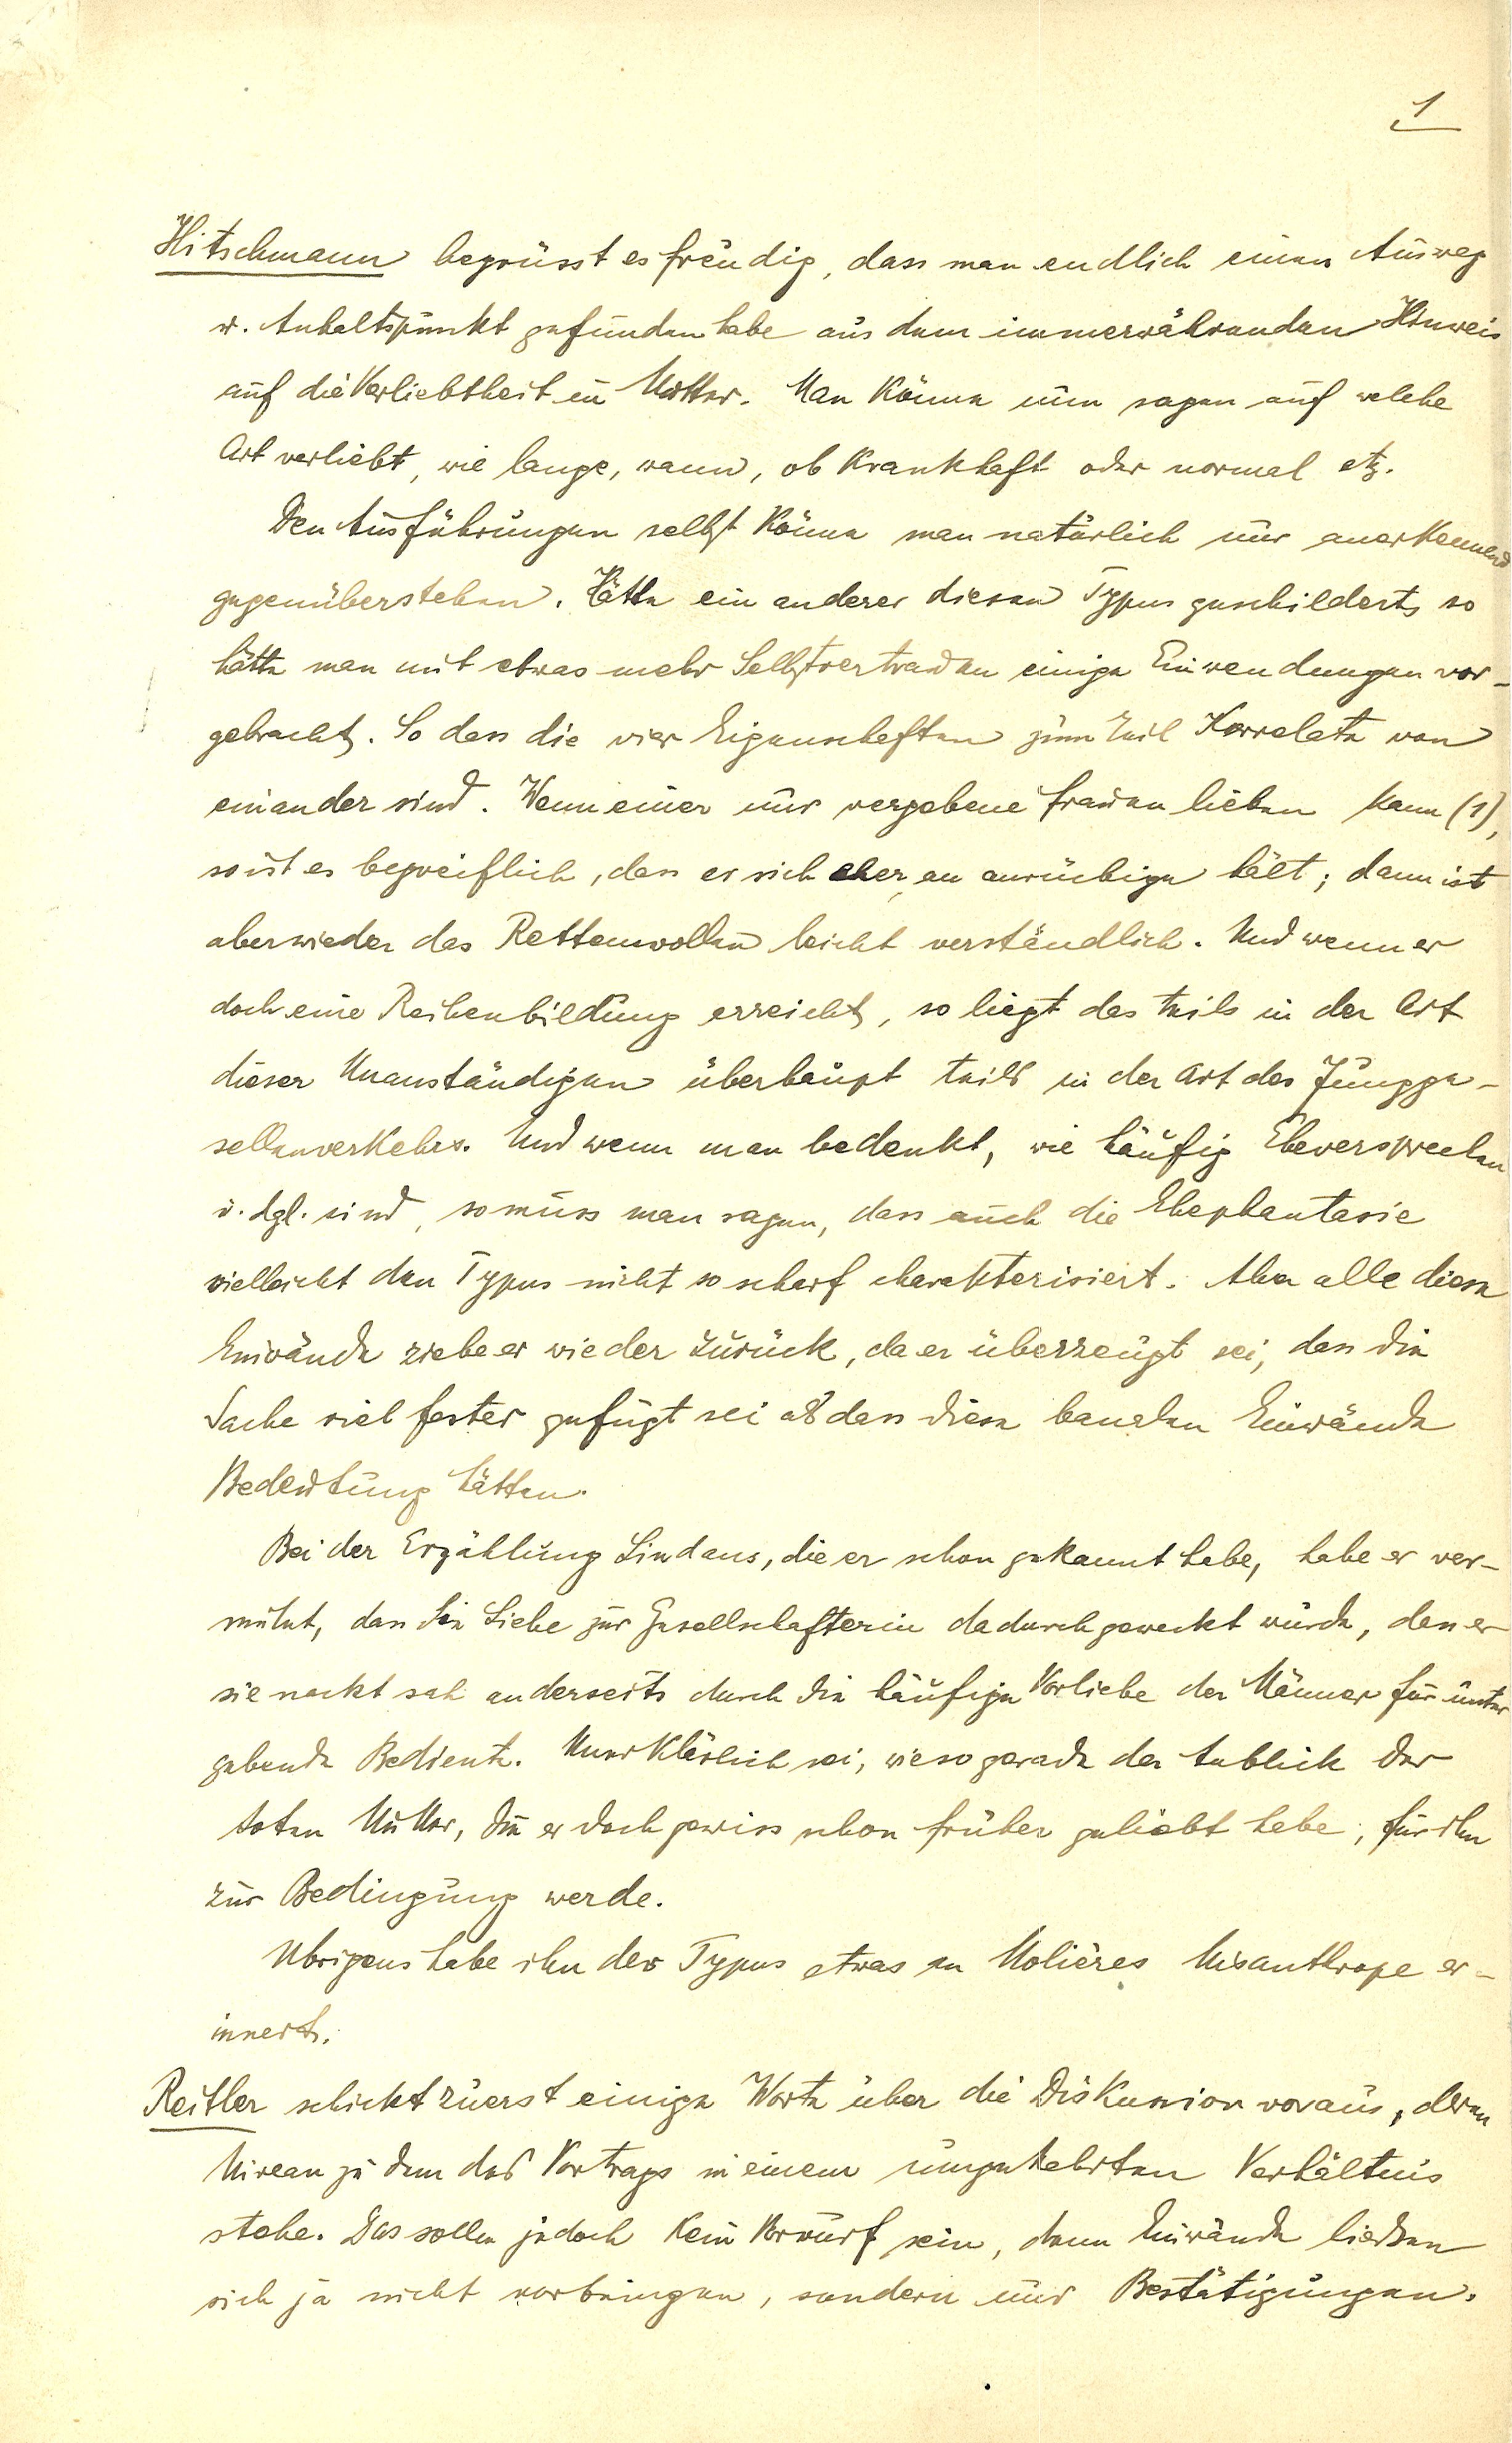 1
Hitschmann begrüsst es freudig, dass man endlich einen Ausweg
u. Anhaltspunkt gefunden habe aus dem immerwährenden Hinweis
auf die Verliebtheit in Mutter. Man könne nun sagen auf welche
Art verliebt, wie lange, wann, ob krankhaft oder normal etz.
Den Ausführungen selbst könne man natürlich nur anerkennend
gegenüberstehen. Hätte ein anderer diesen Typus geschildert, so
hätte man mit etwas mehr Selbstvertrauen einige Einwendungen vor-
gebracht. So dass die vier Eigenschaften zum Teil Korrelate von
einander sind. Wenn einer nur vergebene Frauen lieben kann (1),
so ist es begreiflich, dass er sich eher an anrüchige hält; dann ist
aber wieder das Rettenwollen leicht verständlich. Und wenn er
doch eine Reihenbildung erreicht, so liegt das teils in der Art
dieser Unanständigen überhaupt teils in der Art des Jungge-
sellenverkehrs. Und wenn man bedenkt, wie häufig Eheversprechen
u. dgl. sind, so muss man sagen, dass auch die Ehephantasie
vielleicht den Typus nicht so scharf charakterisiert. Aber alle diese
Einwände ziehe er wieder zurück, da er überzeugt sei, dass die
Sache viel fester gefügt sei als dass diese banalen Einwände
Bedeutung hätten.
Bei der Erzählung Lindaus, die er schon gekannt habe, habe er ver-
mutet, dass die Liebe zur Gesellschafterin dadurch geweckt wurde, dass er
sie nackt sah anderseits durch die häufige Vorliebe der Männer für unter
gebende Bediente. Unerklärlich sei, wieso gerade der Anblick der
toten Mutter, die er doch gewiss schon früher geliebt habe, für ihn
zur Bedingung werde.
Übrigens habe ihn der Typus etwas an Molières Misanthrope er-
innert.
Reitler schickt zuerst einige Worte über die Diskussion voraus, deren
Niveau zu dem des Vortrags in einem umgekehrten Verhältnis
stehe. Das solle jedoch kein Vorwurf sein, denn Einwände liessen
sich ja nicht vorbringen, sondern nur Bestätigungen.